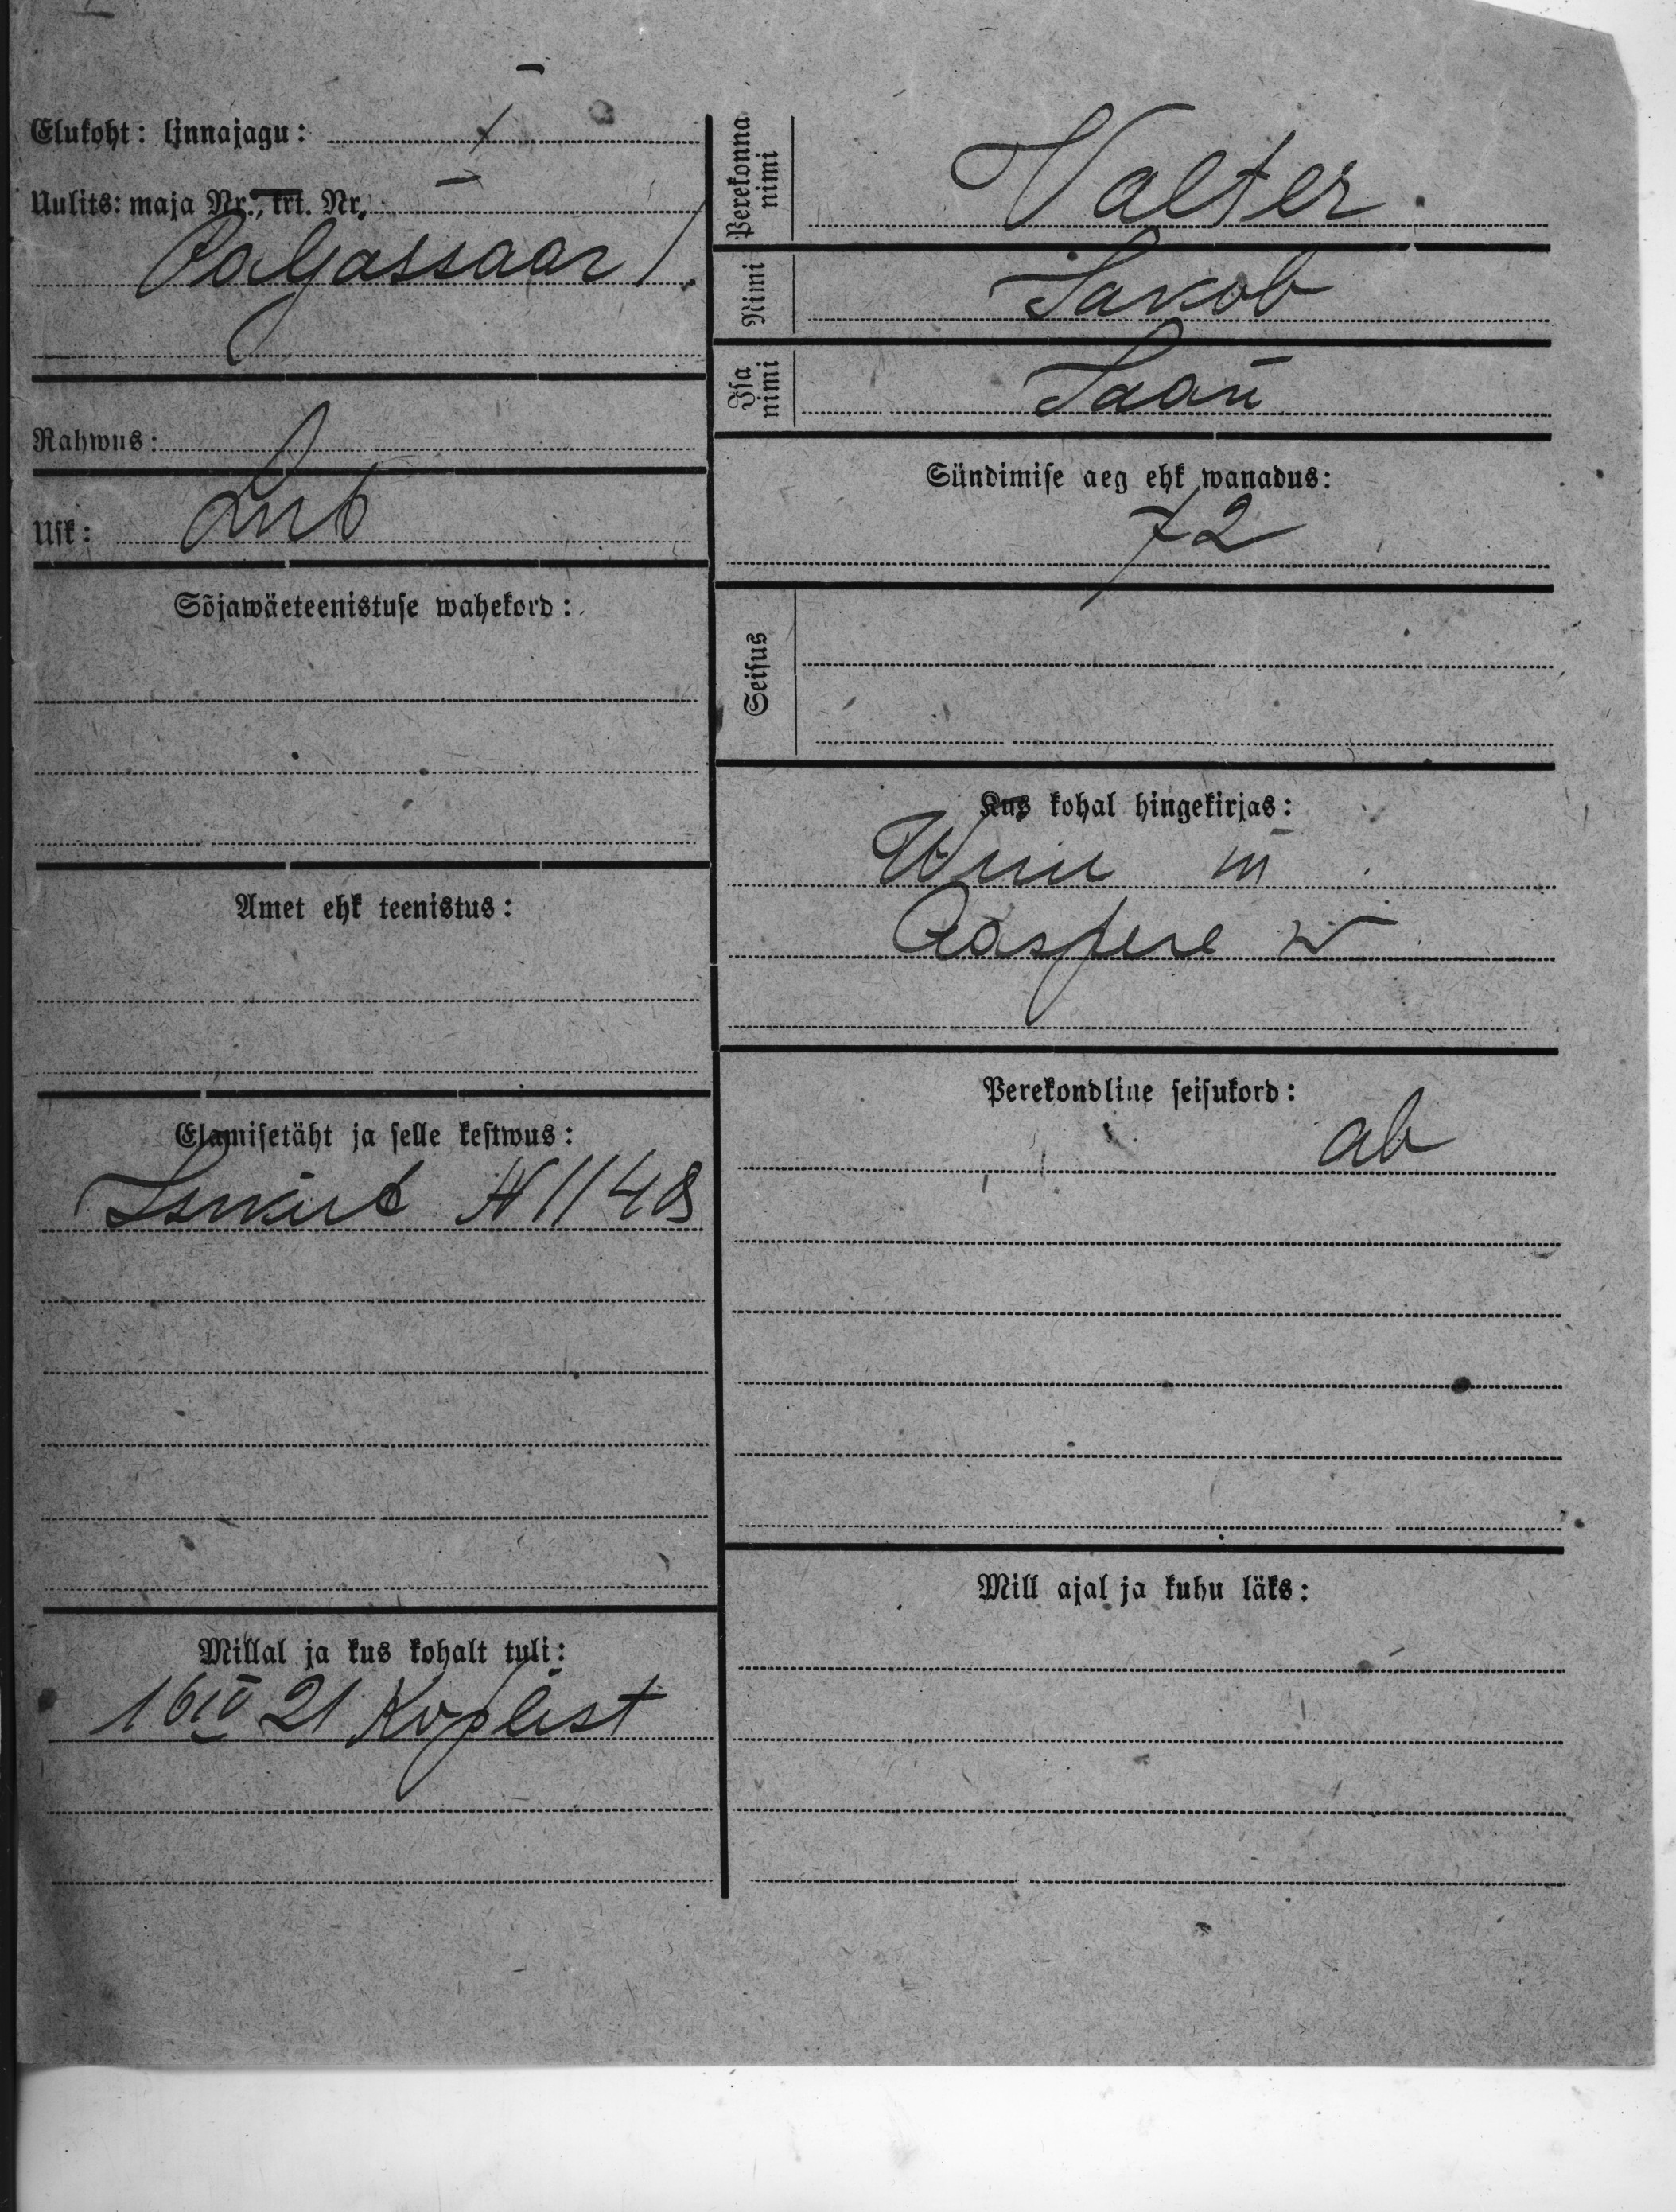 Elukoht: linnajagu: I
Uulits: maja Nr., krt. Nr.
Paljassaar 1.
Rahwus:
Usk: Lut
Sõjawäeteenistuse wahekord:
Amet ehk teenistus:
Elamisetäht ja selle kestwus:
Isikut N 1148
Millal ja kus kohalt tuli:
16 IV 21 Koplist
Perekonna nimi Valter
Nimi Jakob
Isa nimi Jaan
Sündimise aeg ehk wanadus:
72
Seisus
Kus kohal hingekirjas:
Wiru m
Aaspere w
Perekondline seisukord:
ab
Mill ajal ja kuhu läks: